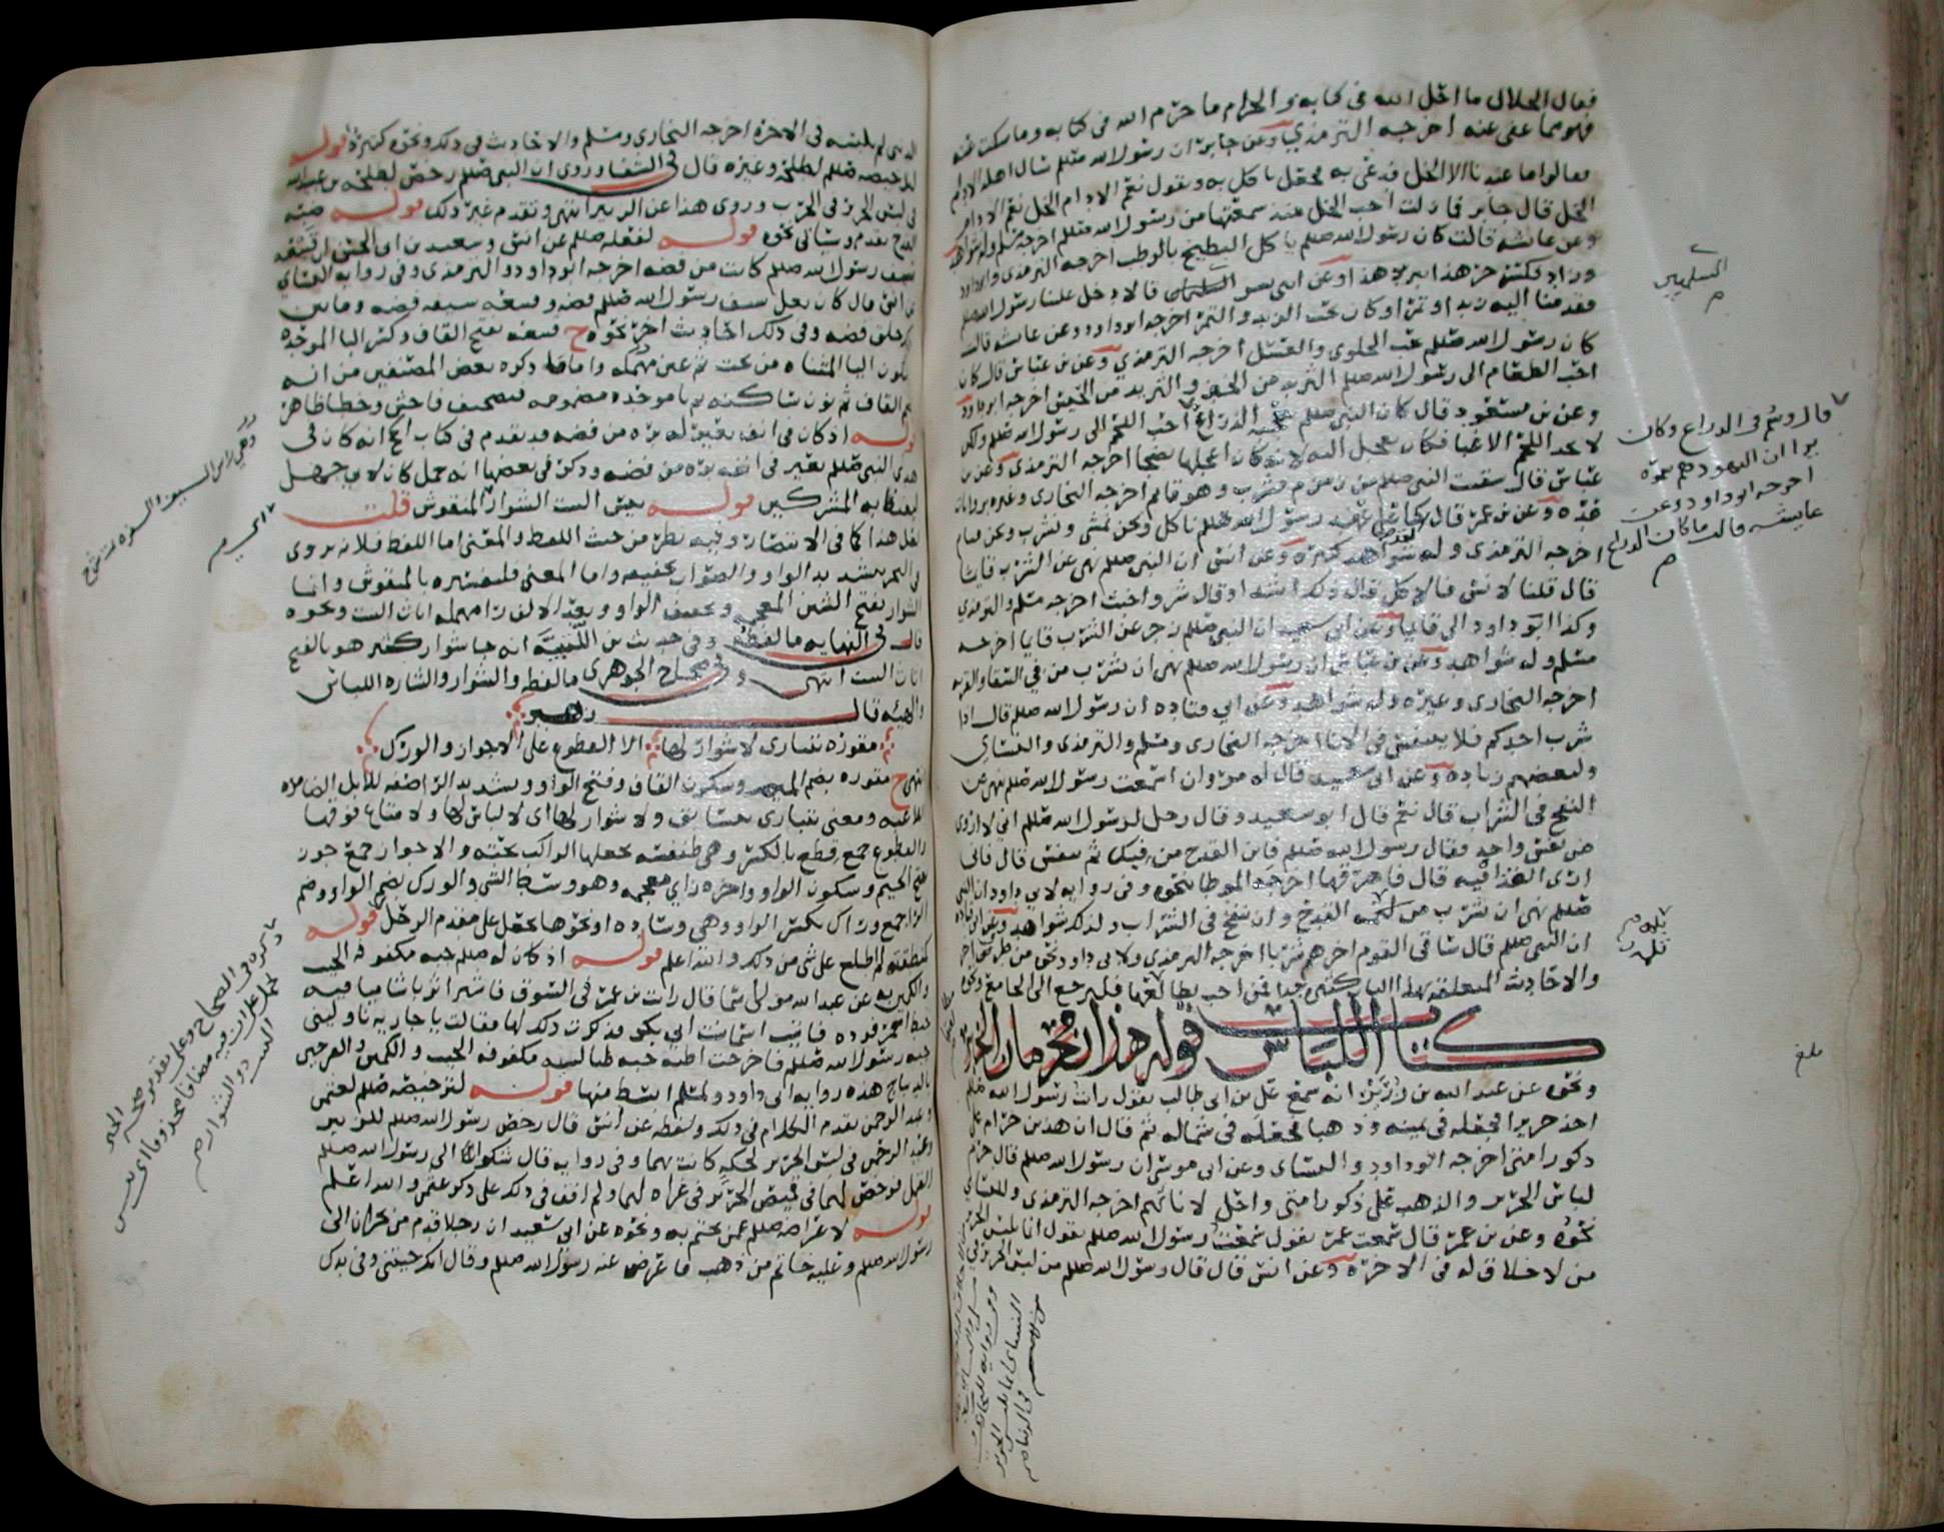 فقال الحلال ما احل الله في كتابه والحرام ما حرم الله في كتابه وما سكت عنه
فهو مما عفى عنه اخرجه الترمذي وعن جابر ان رسول الله صلعم سال اهله الادام
فقالوا ما عندنا الا الخل فدعى به فجعل ياكل به ويقول نعم الادام الخل نعم الادام
الخل قال جابر فما زلت احب الخل منذ سمعتها من رسول الله صلعم اخرجه مسلم وله شواهد
وعن عائشه قالت كان رسول الله صلعم ياكل البطيخ بالرطب اخرجه الترمذي وابو داود
وزاد نكسر حر هذا ببرد هذا وعن ابني بسر السلميين قالا دخل علينا رسول الله صلعم
فقدمنا اليه زبدا وتمرا وكان يحب الزبد والتمر اخرجه ابو داود وعن عايشه قالت
كان رسول الله صلعم يحب الحلوى والعسل اخرجه الترمذي وعن بن عباس قال كان
احب الطعام الى رسول الله صلعم الثريد من الخبز والثريد من الحيس اخرجه ابو داود
وعن بن مسعود قال كان النبي صلعم يحب الذراع احب اللحم الى رسول الله صلعم ولكن
لا يجد اللحم الا غبا فكان يعجل اليه لانه كان اعجلها نضجا اخرجه الترمذي وعن بن
عباس قال سقيت النبي صلعم من زمزم فشرب وهو قائم اخرجه البخاري وغيره بروايات
عده وعن بن عمر قال كنا على عهد رسول الله صلعم ناكل ونحن نمشي ونشرب ونحن قيام
اخرجه الترمذي وله شواهد كثيره وعن انس ان النبي صلعم نهى عن الشرب قايما
قال قلنا لانس فالاكل قال ذلك اشد او قال شر واخبث اخرجه مسلم والترمذي
وكذا ابو داود الى قايما وعن ابي سعيد ان النبي صلعم زجر عن الشرب قايما اخرجه
مسلم وله شواهد وعن بن عباس ان رسول الله صلعم نهى ان يشرب من في السقا والقربه
اخرجه البخاري وغيره وله شواهد وعن ابي قتاده ان رسول الله صلعم قال اذا
شرب احدكم فلا يتنفس في الانا اخرجه البخاري ومسلم والترمذي والنساي
ولبعضهم زياده وعن ابي سعيد قال له مروان اسمعت رسول الله صلعم نهى عن
النفخ في الشراب قال نعم قال ابو سعيد وقال رجل لرسول الله صلعم اني لا اروى
من نفس واحد فقال رسول الله صلعم فابن القدح من فيك ثم تنفس قال فاني
ارى القذا فيه قال فاهرقها اخرجه الموطا بنحوه وفي روايه لابي داود ان النبي
صلعم نهى ان يشرب من ثلمه القدح وان ينفخ في الشراب ولذلك شواهد
ان النبي صلعم قال ساقي القوم اخرهم شربا اخرجه الترمذي ولابي داود نحوه من طريق اخر
والاحاديث المتعلقه بهذا الباب كثيره جدا فمن احب مطالعتها فليرجع الى الجامع ونحوه
كتاب اللباس قوله هذان محرمان الخبر
ونحوه عن عبد الله بن زرير انه سمع علي بن ابي طالب يقول رايت رسول الله صلعم
اخذ حريرا فجعله في يمينه وذهبا فجعله في شماله ثم قال ان هذين حرام على
ذكور امتي اخرجه ابو داود والنساي وعن ابي موسى ان رسول الله صلعم قال حرم
لباس الحرير والذهب على ذكور امتي واحل لاناثهم اخرجه الترمذي وللنساي
نحوه وعن بن عمر قال سمعت عمر يقول سمعت رسول الله صلعم يقول انما يلبس الحرير
من لا خلاق له في الاخره وعن انس قال قال رسول الله صلعم من لبس الحرير في
السلميين
قال وسُم في الذراع وكان
يرا ان اليهود هم سمّوه
اخرجه ابو داود وعن
عايشه قالت ما كان الذراع
بلغ
الدنيا لم يلبسه في الاخره اخرجه البخاري ومسلم والاحاديث في ذلك ونحوه كثيره قوله
لترخيصه صلعم لطلحه وغيره قال في الشفا وروى ان النبي صلعم رخص لطلحه بن عبد الله
في لبس الحرير في الحرب وروى هذا عن الزبير انتهى وتقدم غير ذلك قوله
تقدم وسياتي نحوه قوله لفعله صلعم عن انس وسعيد بن ابي الحسن ان قبيعه
سيف رسول الله صلعم كانت من فضه اخرجه ابو داود والترمذي وفي روايه النساي
عن انس قال كان نعل سيف رسول الله صلعم فضه وقبيعه سيفه فضه وما بين
ذلك حلق فضه وفي ذلك احاديث اخر نحوه ح قبيعه بفتح القاف وكسر البا الموحده
وسكون اليا المثناه من تحت ثم عين مهمله واما ما ذكره بعض المصنفين من انه
بضم القاف ثم نون ساكنه ثم با موحده مضمومه فتصحيف فاحش وخطا ظاهر
قوله اذ كان في انف بعير له بره من فضه قد تقدم في كتاب الحج انه كان في
هدي النبي صلعم بعير في انفه بره من فضه وذكر في بعضها انه جمل كان لابي جهل
ليغيظ به المشركين قوله يعني الست الشوار المنقوش قلت
لفظ هذا كما في الانتصار وفيه نظر من حيث اللفظ والمعنى اما اللفظ فلانه يروى
في البحر بتشديد الواو والصواب تخفيفه واما المعنى فلتفسيره بالمنقوش وانما
الشوار بفتح الشين المعجمه وتخفيف الواو وبعد الالف را مهمله اثاث البيت ونحوه
قال في النهايه ما لفظه وفي حديث بن اللتبيه انه جا بشوار كثير هو بالفتح
اثاث البيت انتهى وفي صحاح الجوهري ما لفظه والشوار والشاره اللباس
والهيئه قال زهير
مقوره تتبارى لا شوار لها الا القطوع على الاجواز والورك
انتهى ح مقوره بضم الميم وسكون القاف وفتح الواو وتشديد الرا صفه للابل الضامره
ومعنى تتبارى تتسابق ولا شوار لها اي لا لباس لها ولا متاع فوقها
والقطوع جمع قطع بالكسر وهي طنفسه يجعلها الراكب تحته والاجواز جمع جوز
بفتح الجيم وسكون الواو واخره زاي معجمه وهو وسط الشي والورك بضم الواو وضم
الرا جمع وراك بكسر الواو وهي وساده او نحوها تجعل على مقدم الرحل قوله
كمنطقته لم اطلع على شي من ذلك والله اعلم قوله اذ كان له صلعم جبه مكفوفه الجيب
والكمين عن عبد الله مولى اسما قال رايت بن عمر في السوق فاشترا ثوبا شاميا فيه
خيط احمر فرده فاتيت اسما بنت ابي بكر فذكرت ذلك لها فقالت يا جاريه ناوليني
جبه رسول الله صلعم فاخرجت جبه طيالسيه مكفوفه الجيب والكمين والفرجين
بالديباج هذه روايه ابي داود ولمسلم ابسط منها قوله لترخيصه صلعم
وعبد الرحمن تقدم الكلام في ذلك ولفظه عن انس قال رخص رسول الله صلعم للزبير
وعبد الرحمن في لبس الحرير لحكه كانت بهما وفي روايه قال شكوا الى رسول الله صلعم
القمل فرخص لهما في قميص الحرير في غزاه لهما ولم اقف في ذلك على ذكر عمر والله اعلم
قوله لاعراضه صلعم عمن تختم به ونحوه عن ابي سعيد ان رجلا قدم من نجران الى
رسول الله صلعم وعليه خاتم من ذهب فاعرض عنه رسول الله صلعم وقال انك جيتني وفي يدك